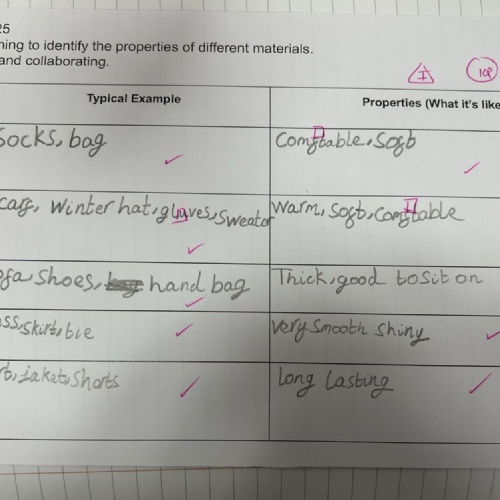 25
ning to identify the properties of different materials.
and collaborating.
I
Typical Example
Properties (What it's like
Socks, bag
Comftable, Soft
Winter hat, gloves, Sweator
Warm, Soft, Comftable
shoes, hand bag
Thick, good to sit on
skirt, tie
very smooth shiny
jaket, Shorts
Long lasting